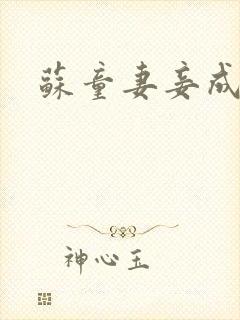 蘇童妻妾成
神心玉